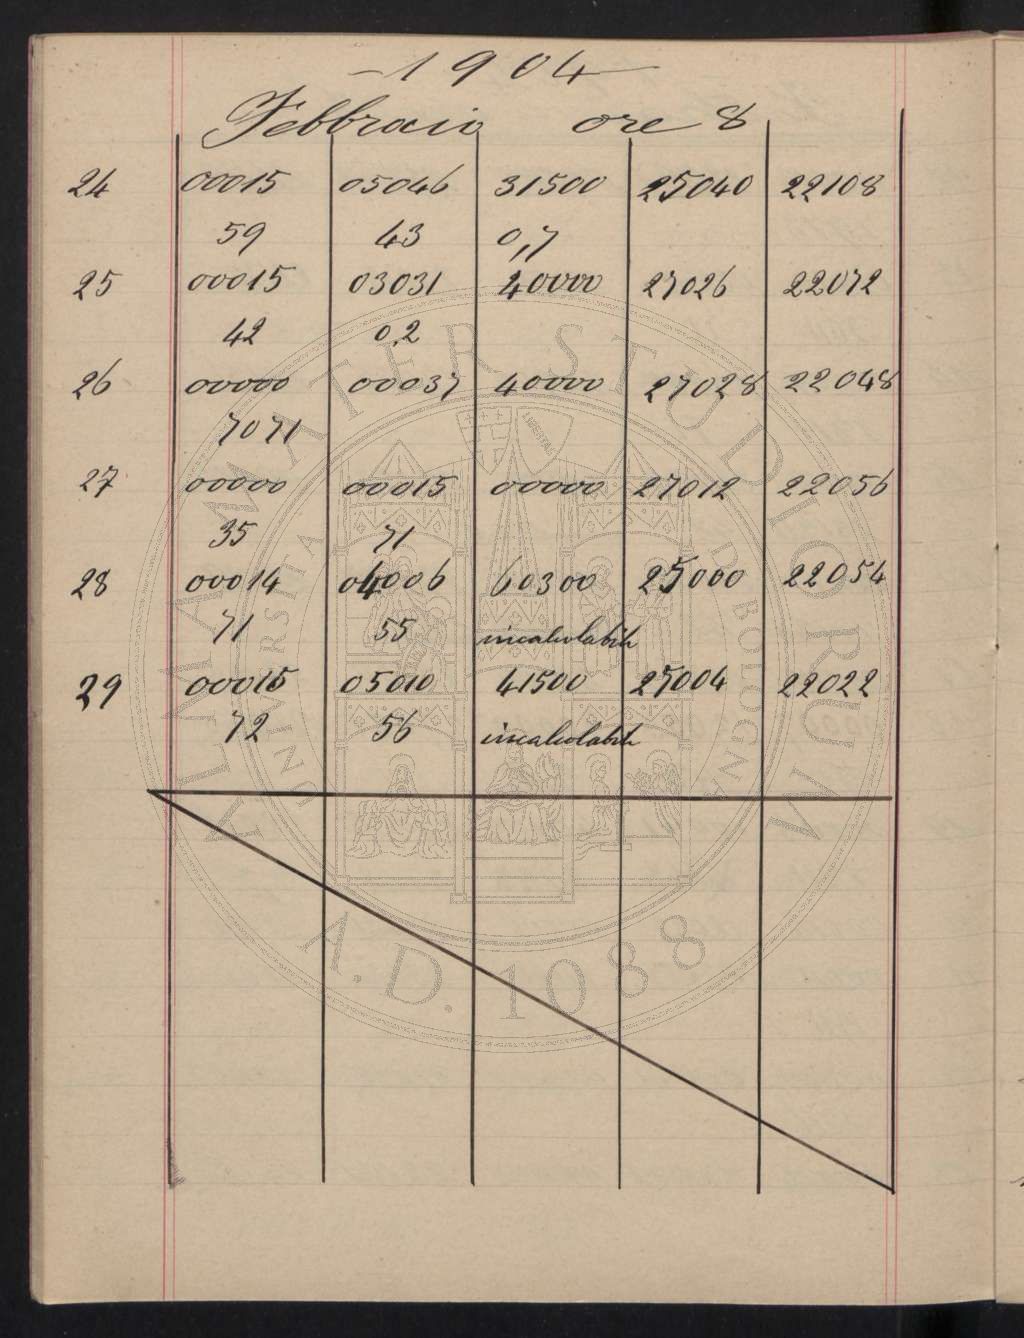 1904
Febbraio ore 8
24 00015 05046 31500 25040 22108
59 43 0,7
25 00015 03031 40000 27026 22072
42 0,2
26 00000 00037 40000 27028 22048
7071
27 00000 00015 00000 27012 22056
35 71
28 00014 04006 60300 25000 22054
71 55 incalcolabile
29 00015 05010 41500 27004 22022
72 56 incalcolabile
ALMA MATER STUDIORUM
A.D. 1088
UNIVERSITÀ DI BOLOGNA
LIBERTAS